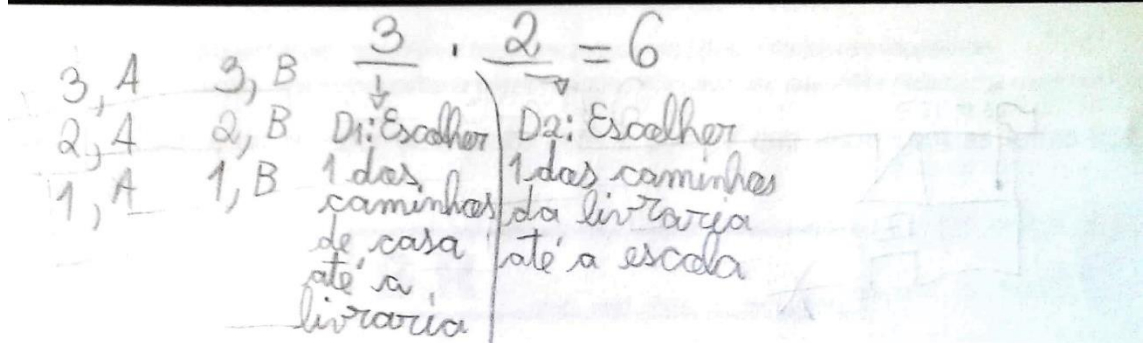 3 . 2 = 6
3, A 3, B
2, A 2, B
1, A 1, B
D1: Escolher
1 dos
caminhos
de casa
até a
livraria
D2: Escolher
1 dos caminhos
da livraria
até a escola